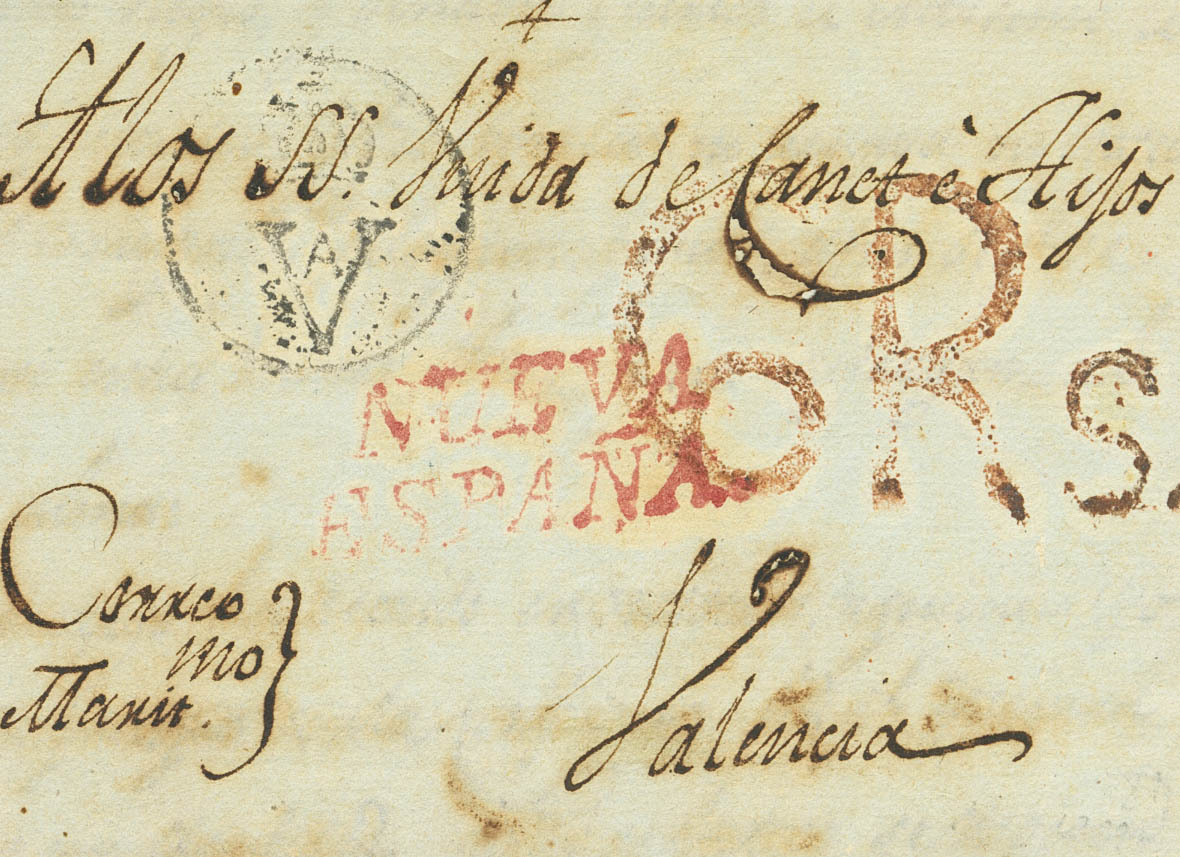 A los SS. Viuda de Canet è Hijos
A
V
NUEVA
ESPAÑA
oRs
Correo
mo
Marit.
Valencia